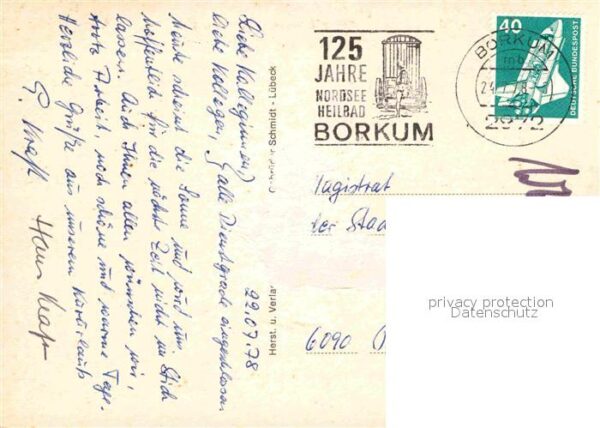 22.07.78
Liebe Kolleginnen,
liebe Kollegen, (alle Dienstgrade eingeschlossen
Heute scheint die Sonne und wird uns
hoffentlich für die nächste Zeit nicht im Stich
lassen. Auch Ihnen allen wünschen wir,
trotz Arbeit, noch schöne und warme Tage.
Herzliche Grüße aus unserem Kurzurlaub
G. Kraft
Hans Kraft
Schmidt - Lübeck
Herst. u. Verlag
125
JAHRE
NORDSEE
HEILBAD
BORKUM
BORKUM
2972
40
DEUTSCHE BUNDESPOST
Magistrat
der Stad
6090
privacy protection
Datenschutz